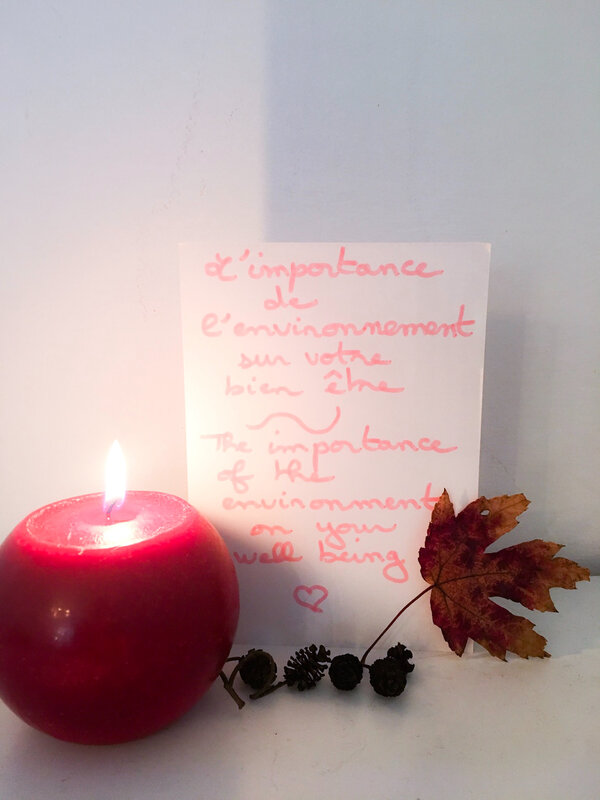 L'importance
de
l'environnement
sur votre
bien être
The importance
of the
environment
on your
well being